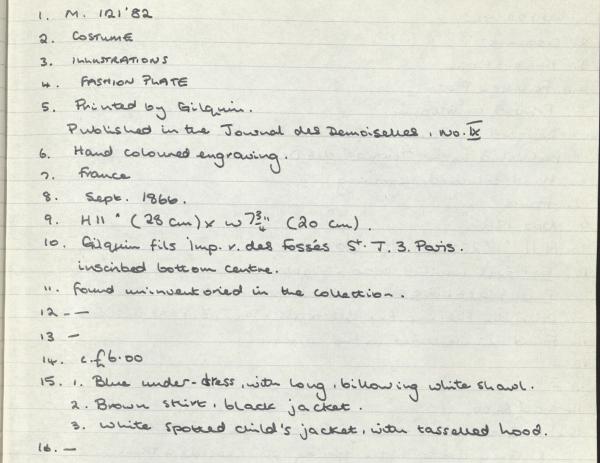 1. M. 121'82
2. COSTUME
3. ILLUSTRATIONS
4. FASHION PLATE
5. Printed by Gilquin.
Published in the Journal des Demoiselles, No. IX
6. Hand coloured engraving.
7. France
8. Sept. 1866.
9. H 11" (28 cm) x W 7 3/4" (20 cm).
10. Gilquin fils Imp. r. des Fossés St. J. 3. Paris.
inscribed bottom centre.
11. Found uninventoried in the collection.
12 - —
13 —
14. c. £6.00
15. 1. Blue under-dress, with long, billowing white shawl.
2. Brown skirt, black jacket.
3. White spotted child's jacket, with tasselled hood.
16. —